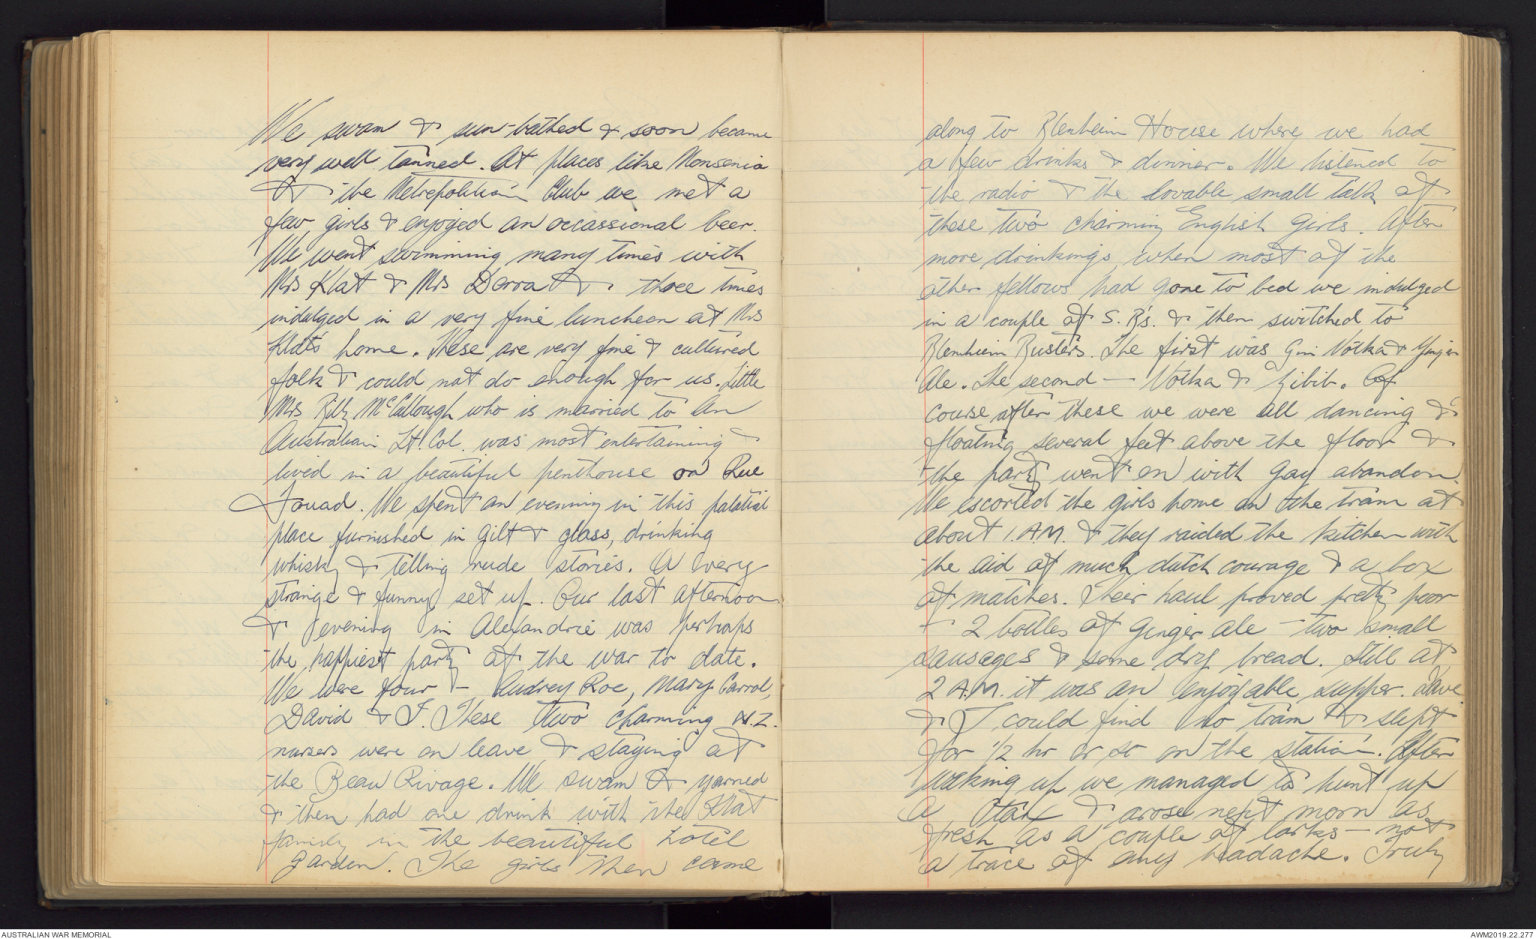 We swam & sun-bathed & soon became
very well tanned. At places like Monsenia
& the Metropolitain Club we met a
few girls & enjoyed an occassional beer.
We went swimming many times with
Mrs Klat & Mrs & three times
indulged in a very fine luncheon at Mrs
Klats home. These are very fine & cultured
folk & could not do enough for us. Little
Mrs McCullough who is married to an
Australian Lt Col. was most entertaining &
lived in a beautiful penthouse on Rue
Fouad. We spent an evening in this palatial
place furnished in gilt & glass, drinking
whisky & telling rude stories. A very
strange & funny set up. Our last afternoon
& evening in Alexandrie was perhaps
the happiest party of the war to date.
We were four - Audrey Roe, Mary Carrol,
David & I. These two charming N.Z.
nurses were on leave & staying at
the Beau Rivage. We swam & yarned
& then had one drink with the Klat
family in the beautiful hotel
garden. The girls then came
along to Blenheim House where we had
a few drinks & dinner. We listened to
the radio & the lovable small talk of
these two charming English girls. After
more drinkings when most of the
other fellows had gone to bed we indulged
in a couple of S. R's. & then switched to
Blenheim Busters. The first was Gin Votka & Ginger
Ale. The second - Votka & Zibib. Of
course after these we were all dancing &
floating several feet above the floor &
the party went on with gay abandon.
We escorted the girls home on the tram at
about 1. A.M. & they raided the kitchen with
the aid of much dutch courage & a box
of matches. Their haul proved pretty poor
- 2 bottles of ginger ale - two small
sausages & some dry bread. Still at
2 A.M. it was an enjoyable supper. Dave
& I could find no tram & slept
for 1/2 hr or so on the station. After
waking up we managed to hunt up
a & arose next morn as
fresh as a couple of larks - not
a trace of any headache. Truly
AUSTRALIAN WAR MEMORIAL
AWM2019.22.277